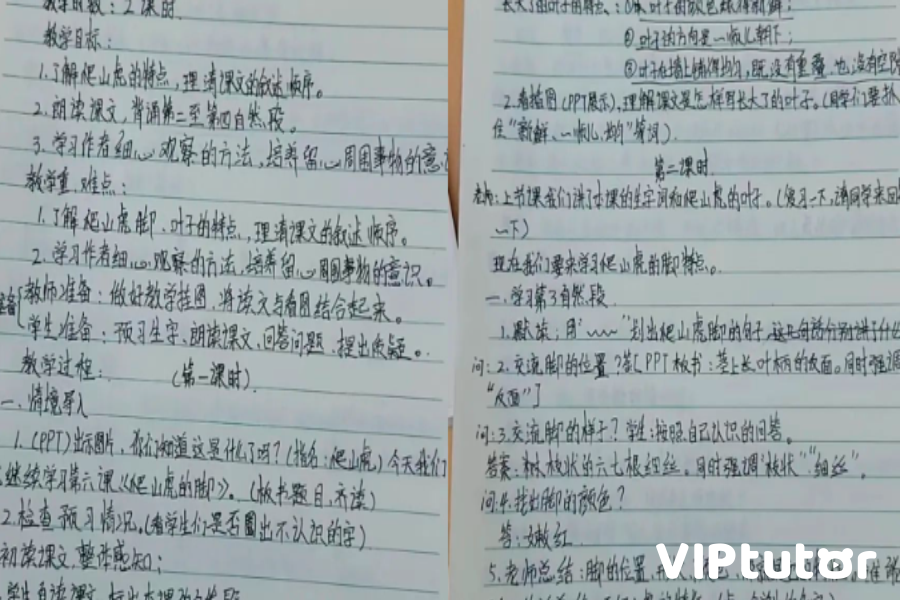 教学时数：2课时.
教学目标：
1.了解爬山虎的特点，理清课文的叙述顺序。
2.朗读课文，背诵第三至第四自然段。
3.学习作者细心观察的方法，培养留心周围事物的意识
教学重、难点：
1.了解爬山虎脚、叶子的特点，理清课文的叙述顺序。
2.学习作者细心观察的方法，培养留心周围事物的意识。
教师准备：做好教学挂图，将读文与看图结合起来。
准备
学生准备：预习生字、朗读课文、回答问题、提出质疑。
教学过程：
（第一课时）
一、情境导入
1.(PPT)出示图片，你们知道这是什么了吗？（指名：爬山虎）今天我们
继续学习第六课《爬山虎的脚》。（板书题目，齐读）
2.检查预习情况。（看学生们是否圈出不认识的字）
初读课文，整体感知：
学生自读课文，
长大了的叶子的特点：①
②叶子的方向是一顺儿朝下；
③叶子在墙上铺得均匀，既没有重叠，也没有空隙
2.看插图(PPT展示)，理解课文是怎样写长大了的叶子。（同学们要抓
住“新鲜、一顺儿、均”等词）.
第二课时.
老师：上节课我们讲了本课的生字词和爬山虎的叶子。（复习一下，请同学来回
一下）
现在我们要来学习爬山虎的脚特点。
一.学习第3自然段.
1.默读：用“﹏﹏”划出爬山虎脚的句子，这几句话分别讲了什么
问：2.交流脚的位置？答［PPT板书：茎上长叶柄的反面。同时强调
“反面”］
问：3.交流脚的样子？学生：按照自己认识的回答。
答案：树枝状的六七根细丝。同时强调“枝状”“细丝”。
问：4.找出脚的颜色？
答：嫩红.
5.老师总结：脚的位置、形状、
VIPtutor